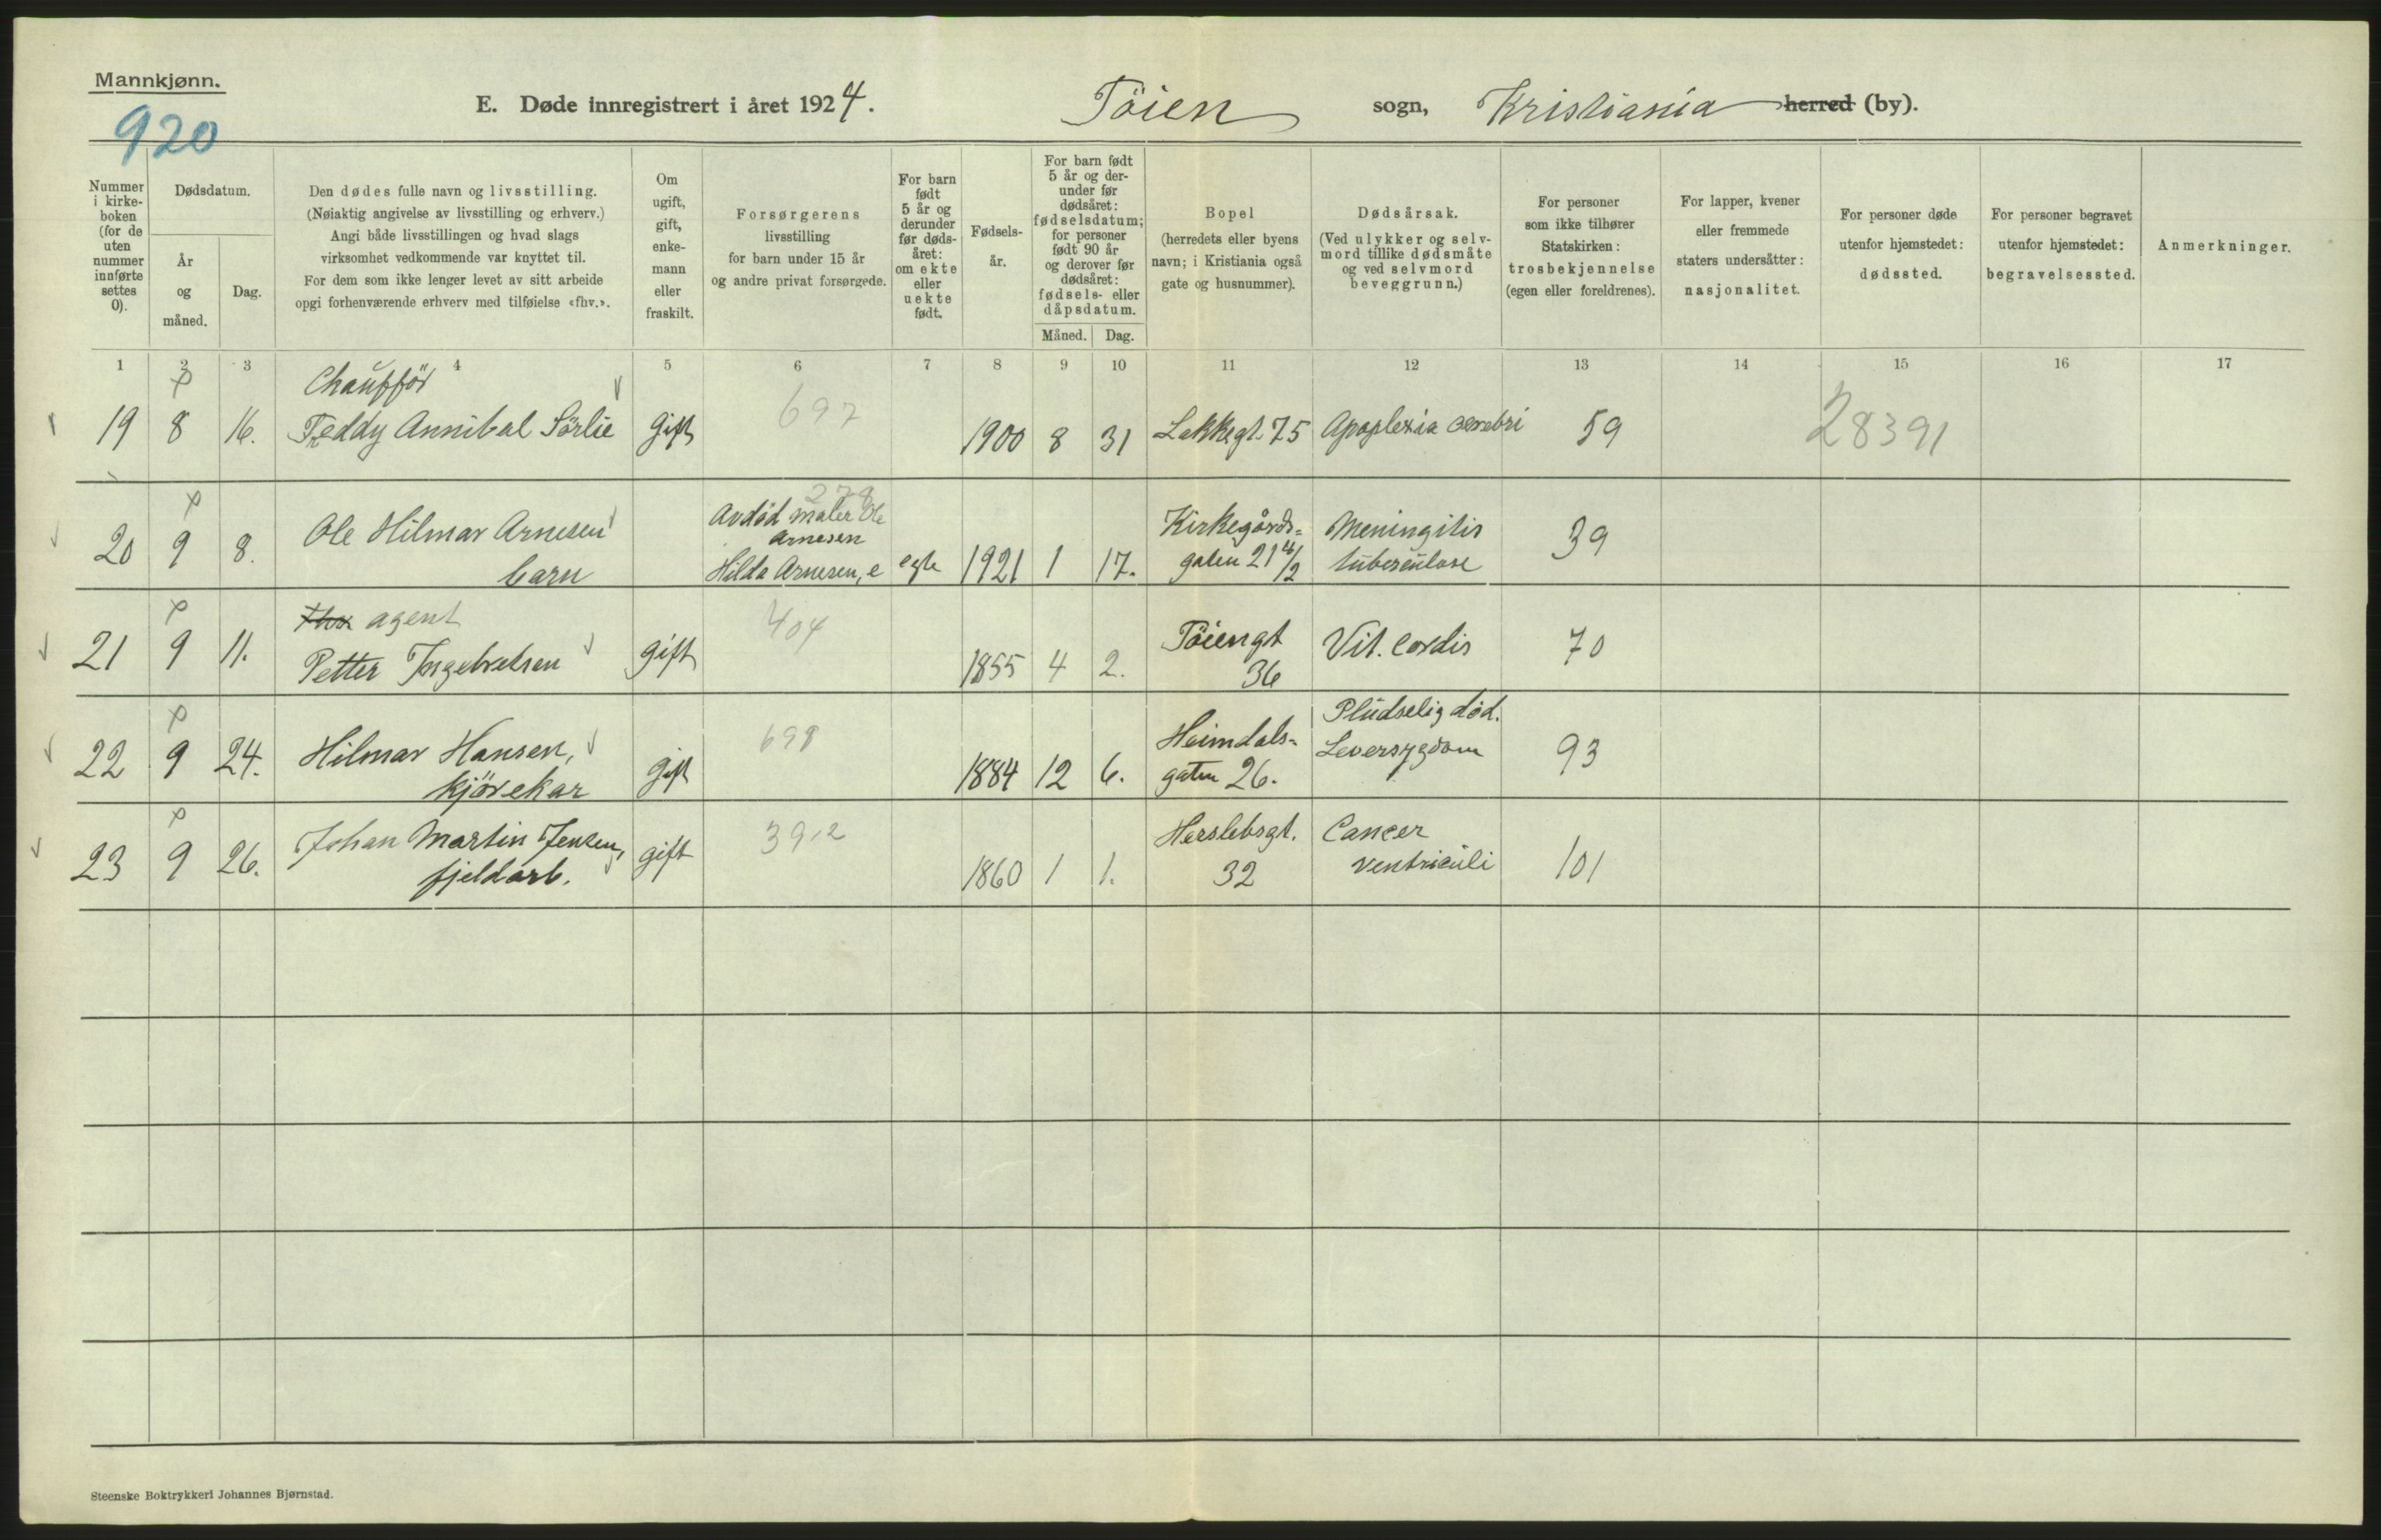 Mannkjønn.
920
E. Døde innregistrert i året 1924. Töien sogn, Kristiania herred (by).
Nummer i kirke-boken (for de uten nummer innførte settes 0).
Dødsdatum.
År og måned.
Dag.
Den dødes fulle navn og livsstilling.
(Nøiaktig angivelse av livsstilling og erhverv.)
Angi både livsstillingen og hvad slags
virksomhet vedkommende var knyttet til.
For dem som ikke lenger levet av sitt arbeide
opgi forhenværende erhverv med tilføielse «fhv.».
Om ugift, gift, enke-mann eller fraskilt.
Forsørgerens
livsstilling
for barn under 15 år
og andre privat forsørgede.
For barn født 5 år og derunder før døds-året: om ekte eller uekte født.
Fødsels-år.
For barn født 5 år og der-under før dødsåret: fødselsdatum; for personer født 90 år og derover før dødsåret: fødsels- eller dåpsdatum.
Måned. Dag.
Bopel
(herredets eller byens
navn; i Kristiania også
gate og husnummer).
Dødsårsak.
(Ved ulykker og selv-
mord tillike dødsmåte
og ved selvmord
beveggrunn.)
For personer
som ikke tilhører
Statskirken:
trosbekjennelse
(egen eller foreldrenes).
For lapper, kvener
eller fremmede
staters undersåtter:
nasjonalitet.
For personer døde
utenfor hjemstedet:
dødssted.
For personer begravet
utenfor hjemstedet:
begravelsessted.
Anmerkninger.
1 2 3 4 5 6 7 8 9 10 11 12 13 14 15 16 17
Chaufför
19 8 16. Freddy Annibal Sörlie gift 697 1900 8 31 Lakkegt. 75 Apoplexia cerebri 59 28391
278
Avdød maler Ole Kirkegårds= Meningitis
20 9 8. Ole Hilmar Arnesen Arnesen 39
barn Hilda Arnesen, e egte 1921 1 17. gaten 21 4/2 tuberculose
Fhv. agent 404
21 9 11. Petter Ingebretsen gift 1855 4 2. Töiengt 36 Vit. cordis 70
Pludselig død.
22 9 24. Hilmar Hansen, 698 Heimdals= Leversygdom 93
kjörekar gift 1884 12 6. gaten 26.
23 9 26. Johan Martin Jensen, gift 392 Herslebsgt. Cancer
fjeldarb. 1860 1 1. 32 ventriculi 101
Steenske Boktrykkeri Johannes Bjørnstad.